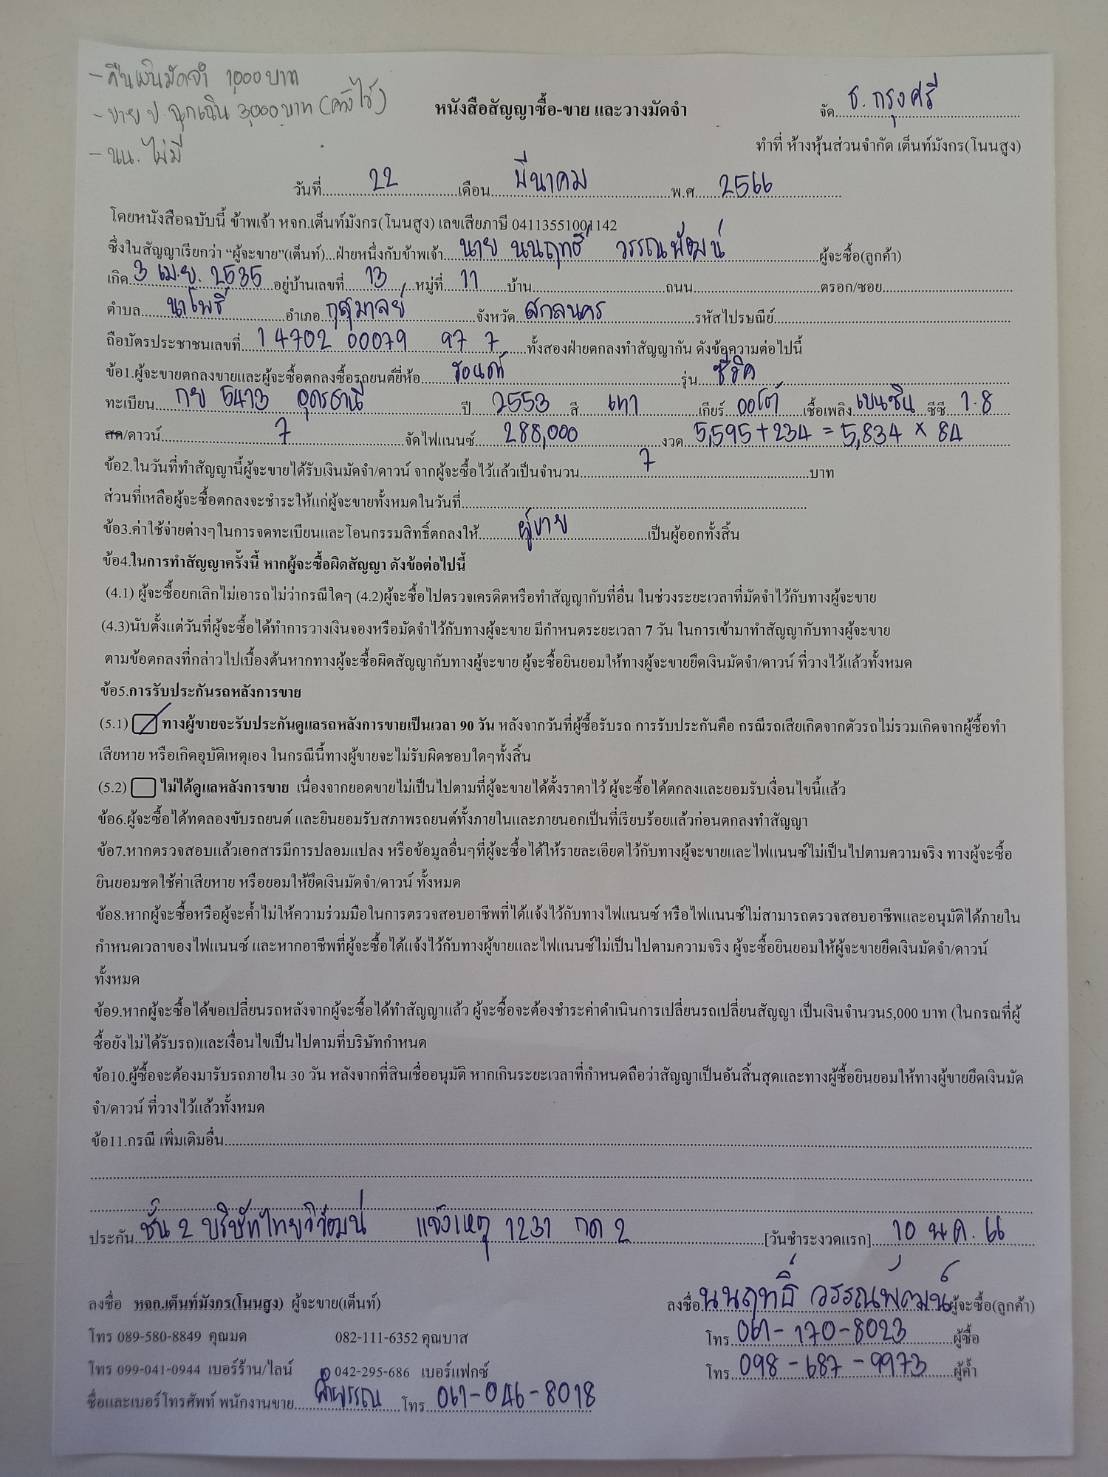 - คืนเงินมัดจำ 1000 บาท
- ขาย ป. ฉุกเฉิน 3,000 บาท (ค้างไว้)
- นน. ไม่มี
หนังสือสัญญาซื้อ-ขาย และวางมัดจำ
จัด ธ. กรุงศรี
ทำที่ ห้างหุ้นส่วนจำกัด เต็นท์มังกร(โนนสูง)
วันที่ 22 เดือน มีนาคม พ.ศ. 2566
โดยหนังสือฉบับนี้ ข้าพเจ้า หจก.เต็นท์มังกร(โนนสูง) เลขเสียภาษี 0411355100​1142
ซึ่งในสัญญาเรียกว่า "ผู้จะขาย"(เต็นท์)...ฝ่ายหนึ่งกับข้าพเจ้า นาย นนฤทธิ์ วรรณพัฒน์ ผู้จะซื้อ(ลูกค้า)
เกิด 3 เม.ย. 2535 อยู่บ้านเลขที่ 13 หมู่ที่ 11 บ้าน ถนน ตรอก/ซอย
ตำบล นาโพธิ์ อำเภอ กุสุมาลย์ จังหวัด สกลนคร รหัสไปรษณีย์
ถือบัตรประชาชนเลขที่ 1 4702 00079 97 7 ทั้งสองฝ่ายตกลงทำสัญญากัน ดังข้อความต่อไปนี้
ข้อ1.ผู้จะขายตกลงขายและผู้จะซื้อตกลงซื้อรถยนต์ยี่ห้อ ฮอนด้า รุ่น ซีวิค
ทะเบียน กย 5413 อุดรธานี ปี 2553 สี เทา เกียร์ ออโต้ เชื้อเพลิง เบนซิน ซีซี 1.8
สด/ดาวน์ 7 จัดไฟแนนซ์ 288,000 งวด 5,595 + 234 = 5,834 × 84
ข้อ2.ในวันที่ทำสัญญานี้ผู้จะขายได้รับเงินมัดจำ/ดาวน์ จากผู้จะซื้อไว้แล้วเป็นจำนวน 7 บาท
ส่วนที่เหลือผู้จะซื้อตกลงจะชำระให้แก่ผู้จะขายทั้งหมดในวันที่
ข้อ3.ค่าใช้จ่ายต่างๆในการจดทะเบียนและโอนกรรมสิทธิ์ตกลงให้ ผู้ขาย เป็นผู้ออกทั้งสิ้น
ข้อ4.ในการทำสัญญาครั้งนี้ หากผู้จะซื้อผิดสัญญา ดังข้อต่อไปนี้
(4.1) ผู้จะซื้อยกเลิกไม่เอารถไม่ว่ากรณีใดๆ (4.2)ผู้จะซื้อไปตรวจเครดิตหรือทำสัญญากับที่อื่น ในช่วงระยะเวลาที่มัดจำไว้กับทางผู้จะขาย
(4.3)นับตั้งแต่วันที่ผู้จะซื้อได้ทำการวางเงินจองหรือมัดจำไว้กับทางผู้จะขาย มีกำหนดระยะเวลา 7 วัน ในการเข้ามาทำสัญญากับทางผู้จะขาย
ตามข้อตกลงที่กล่าวไปเบื้องต้นหากทางผู้จะซื้อผิดสัญญากับทางผู้จะขาย ผู้จะซื้อยินยอมให้ทางผู้จะขายยึดเงินมัดจำ/ดาวน์ ที่วางไว้แล้วทั้งหมด
ข้อ5.การรับประกันรถหลังการขาย
(5.1) ทางผู้ขายจะรับประกันดูแลรถหลังการขายเป็นเวลา 90 วัน หลังจากวันที่ผู้ซื้อรับรถ การรับประกันคือ กรณีรถเสียเกิดจากตัวรถไม่รวมเกิดจากผู้ซื้อทำ
เสียหาย หรือเกิดอุบัติเหตุเอง ในกรณีนี้ทางผู้ขายจะไม่รับผิดชอบใดๆทั้งสิ้น
(5.2) ไม่ได้ดูแลหลังการขาย เนื่องจากยอดขายไม่เป็นไปตามที่ผู้จะขายได้ตั้งราคาไว้ ผู้จะซื้อได้ตกลงและยอมรับเงื่อนไขนี้แล้ว
ข้อ6.ผู้จะซื้อได้ทดลองขับรถยนต์ และยินยอมรับสภาพรถยนต์ทั้งภายในและภายนอกเป็นที่เรียบร้อยแล้วก่อนตกลงทำสัญญา
ข้อ7.หากตรวจสอบแล้วเอกสารมีการปลอมแปลง หรือข้อมูลอื่นๆที่ผู้จะซื้อได้ให้รายละเอียดไว้กับทางผู้จะขายและไฟแนนซ์ไม่เป็นไปตามความจริง ทางผู้จะซื้อ
ยินยอมชดใช้ค่าเสียหาย หรือยอมให้ยึดเงินมัดจำ/ดาวน์ ทั้งหมด
ข้อ8.หากผู้จะซื้อหรือผู้จะค้ำไม่ให้ความร่วมมือในการตรวจสอบอาชีพที่ได้แจ้งไว้กับทางไฟแนนซ์ หรือไฟแนนซ์ไม่สามารถตรวจสอบอาชีพและอนุมัติได้ภายใน
กำหนดเวลาของไฟแนนซ์ และหากอาชีพที่ผู้จะซื้อได้แจ้งไว้กับทางผู้ขายและไฟแนนซ์ไม่เป็นไปตามความจริง ผู้จะซื้อยินยอมให้ผู้จะขายยึดเงินมัดจำ/ดาวน์
ทั้งหมด
ข้อ9.หากผู้จะซื้อได้ขอเปลี่ยนรถหลังจากผู้จะซื้อได้ทำสัญญาแล้ว ผู้จะซื้อจะต้องชำระค่าดำเนินการเปลี่ยนรถเปลี่ยนสัญญา เป็นเงินจำนวน5,000 บาท (ในกรณที่ผู้
ซื้อยังไม่ได้รับรถ)และเงื่อนไขเป็นไปตามที่บริษัทกำหนด
ข้อ10.ผู้ซื้อจะต้องมารับรถภายใน 30 วัน หลังจากที่สินเชื่ออนุมัติ หากเกินระยะเวลาที่กำหนดถือว่าสัญญาเป็นอันสิ้นสุดและทางผู้ซื้อยินยอมให้ทางผู้ขายยึดเงินมัด
จำ/ดาวน์ ที่วางไว้แล้วทั้งหมด
ข้อ11.กรณี เพิ่มเติมอื่น
ประกัน ชั้น 2 บริษัทไทยวิวัฒน์ แจ้งเหตุ 1231 กด 2 [วันชำระงวดแรก] 10 พ.ค. 66
ลงชื่อ หจก.เต็นท์มังกร(โนนสูง) ผู้จะขาย(เต็นท์) ลงชื่อ นนฤทธิ์ วรรณพัฒน์ ผู้จะซื้อ(ลูกค้า)
โทร 089-580-8849 คุณมด 082-111-6352 คุณบาส โทร 061-170-8023 ผู้ซื้อ
โทร 099-041-0944 เบอร์ร้าน/ไลน์ 042-295-686 เบอร์แฟกซ์ โทร 098-687-9973 ผู้ค้ำ
ชื่อและเบอร์โทรศัพท์ พนักงานขาย โทร 061-046-8018